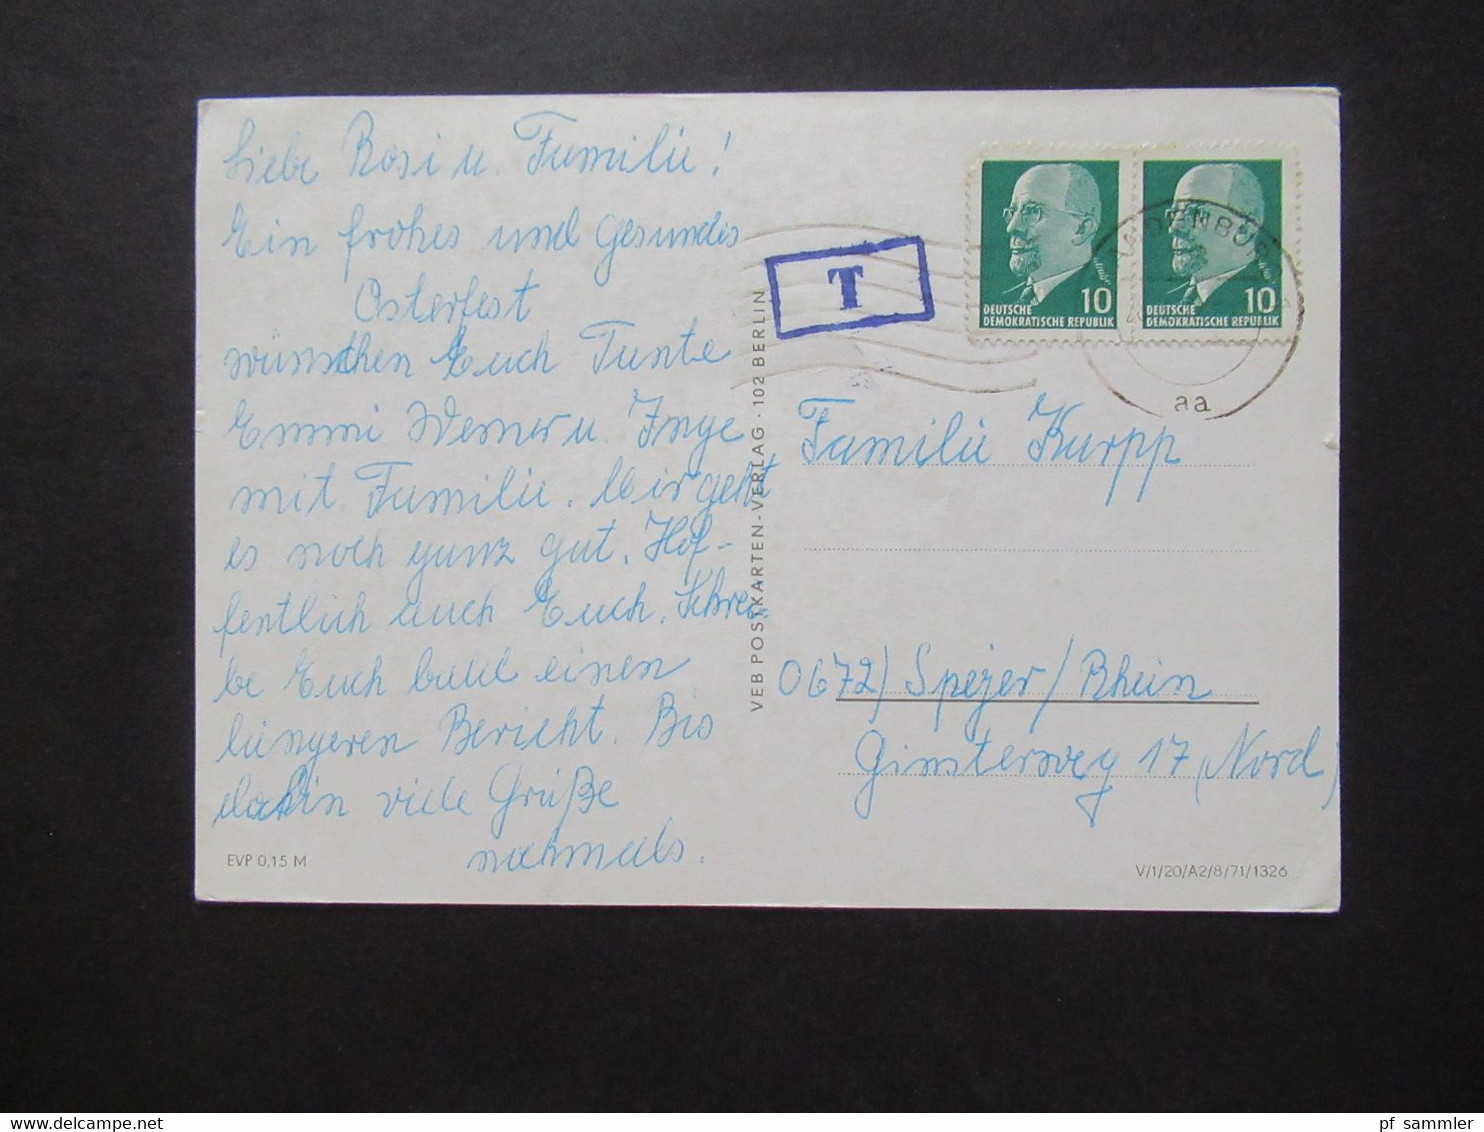 Liebe Rosi u. Familie!
Ein frohes und gesundes
Osterfest
wünschen Euch Tante
Emmi Werner u. Inge
mit Familie. Mir geht
es noch ganz gut. Hof-
fentlich auch Euch. Schrei-
be Euch bald einen
längeren Bericht. Bis
dahin viele Grüße
nochmals.
EVP 0,15 M
VEB POSTKARTEN-VERLAG · 102 BERLIN
T
10
DEUTSCHE
DEMOKRATISCHE REPUBLIK
10
DEUTSCHE
DEMOKRATISCHE REPUBLIK
aa
Familie Kurpp
0672) Speyer/Rhein
Ginsterweg 17 (Nord)
V/1/20/A2/8/71/1326
www.delcampe.net
pf_sammler